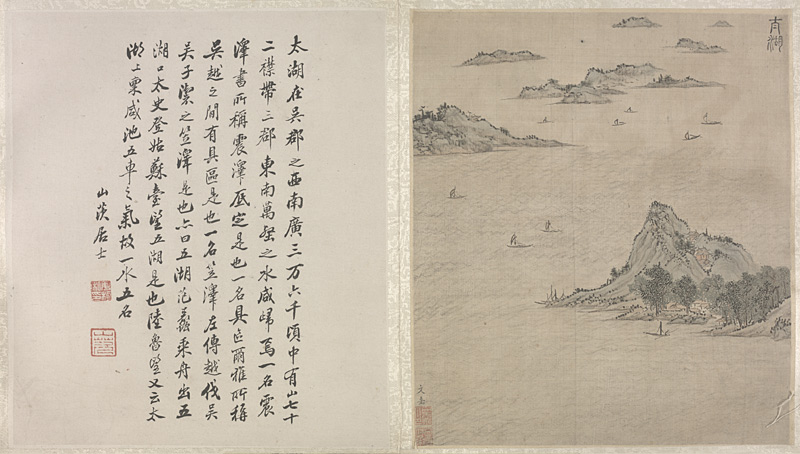 太湖
太湖在吳郡之西南廣三万六千頃中有山七十
二襟帶三郡東南萬壑之水咸歸焉一名震
澤書所稱震澤底定是也一名具區爾雅所稱
吳越之間有具區是也一名笠澤左傳越伐吳
吳子禦之笠澤是也亦曰五湖范蠡乘舟出五
湖口太史登姑蘇臺望五湖是也陸魯望又云太
湖上稟咸池五車之氣故一水五名
山茨居士